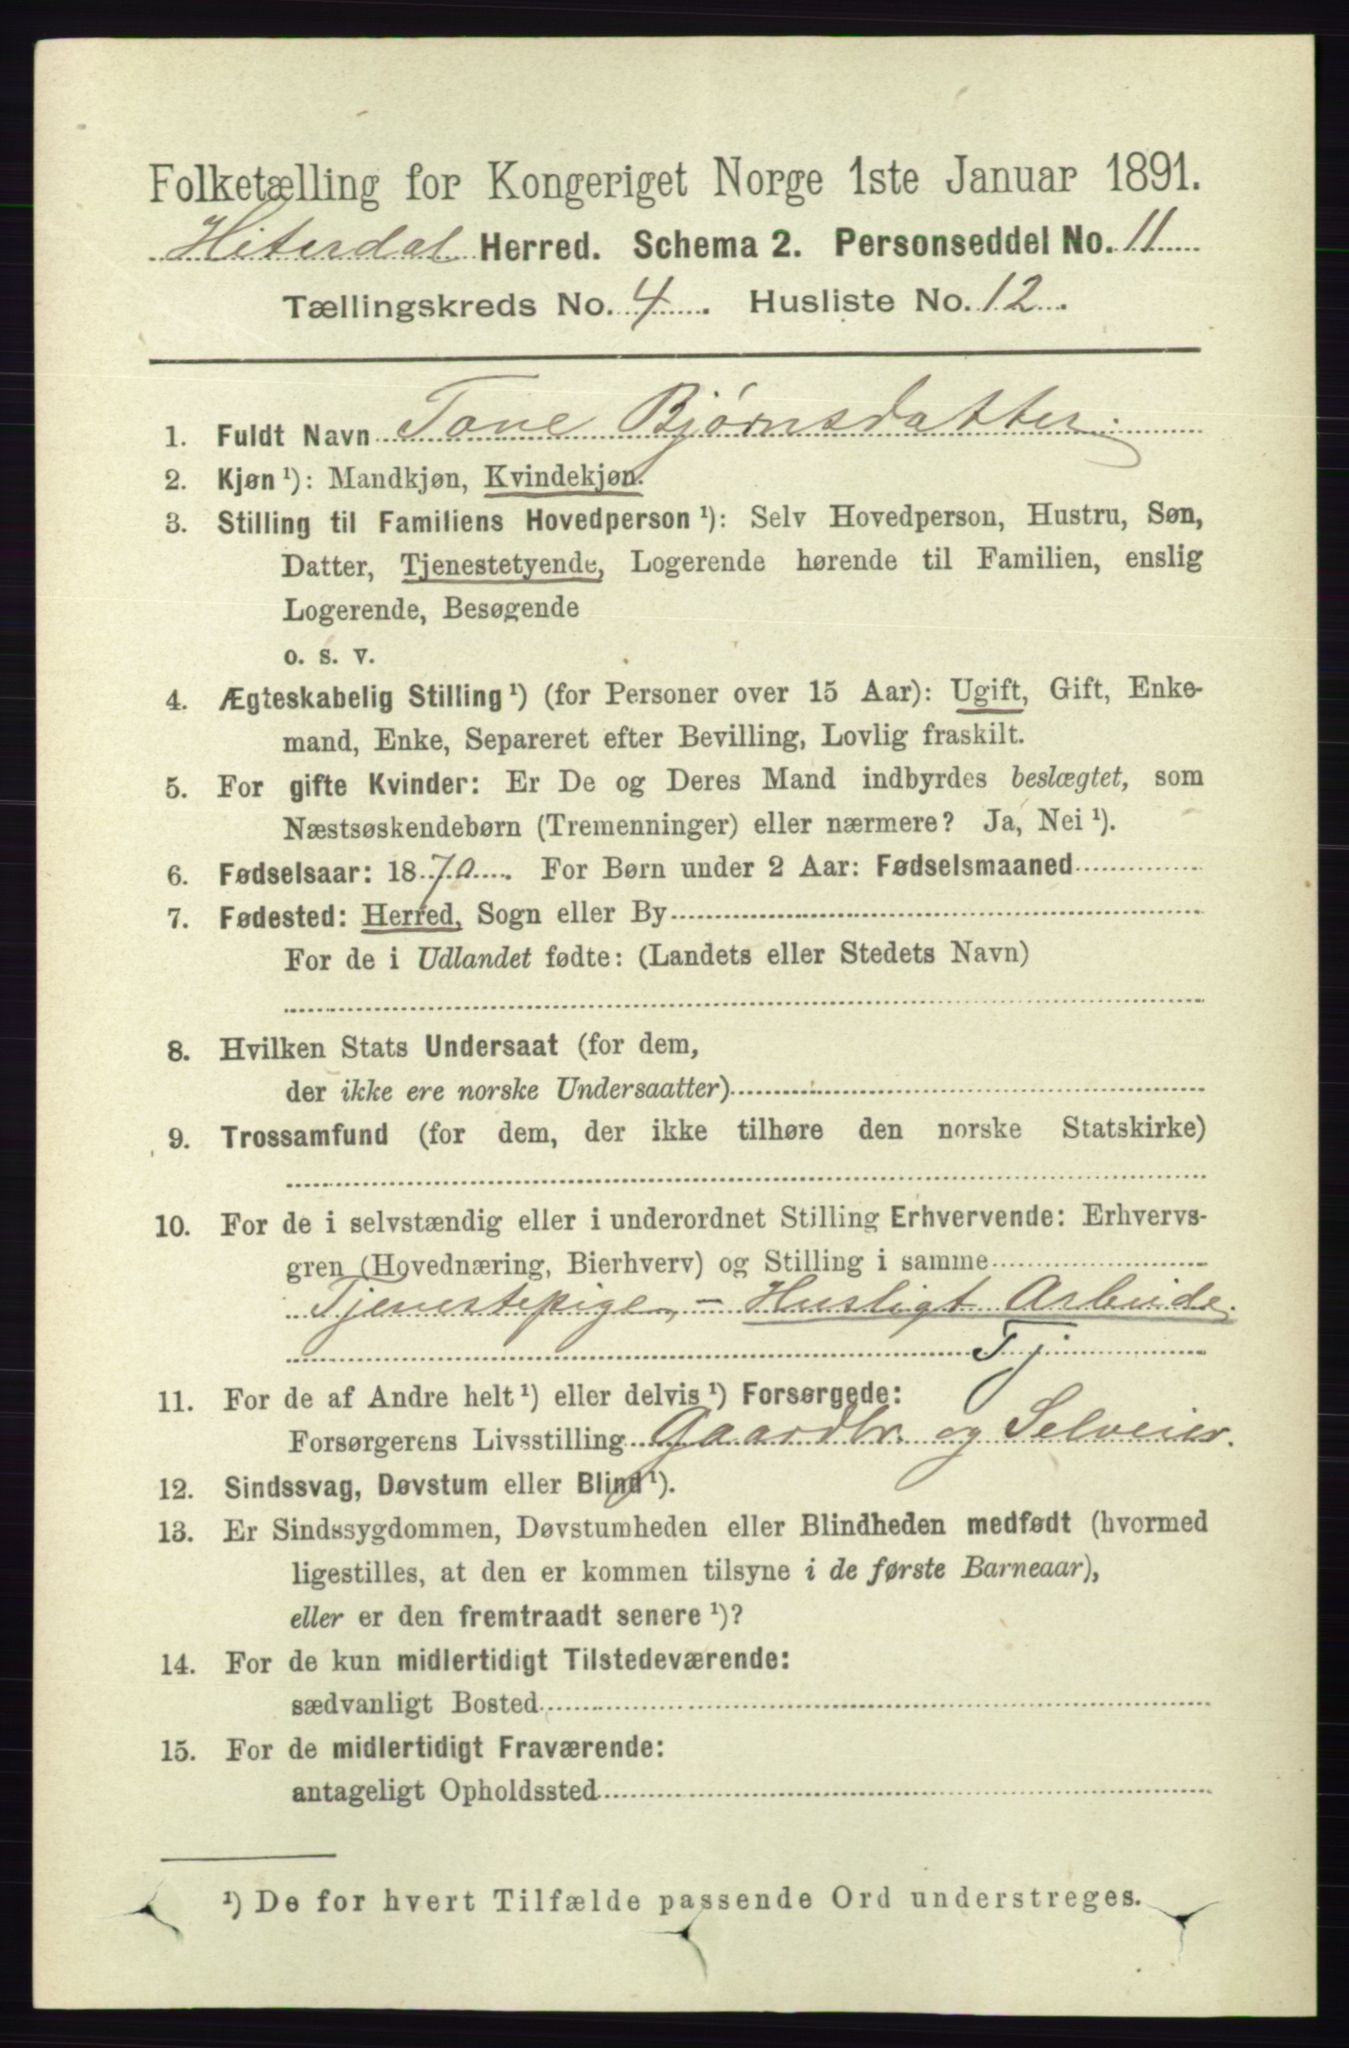 Folketælling for Kongeriget Norge 1ste Januar 1891.
Hiterdal Herred. Schema 2. Personseddel No. 11
Tællingskreds No. 4. Husliste No. 12.
1. Fuldt Navn Tone Bjørnsdatter.
2. Kjøn ¹): Mandkjøn, Kvindekjøn.
3. Stilling til Familiens Hovedperson ¹): Selv Hovedperson, Hustru, Søn,
Datter, Tjenestetyende, Logerende hørende til Familien, enslig
Logerende, Besøgende
o. s. v.
4. Ægteskabelig Stilling ¹) (for Personer over 15 Aar): Ugift, Gift, Enke-
mand, Enke, Separeret efter Bevilling, Lovlig fraskilt.
5. For gifte Kvinder: Er De og Deres Mand indbyrdes beslægtet, som
Næstsøskendebørn (Tremenninger) eller nærmere? Ja, Nei ¹).
6. Fødselsaar: 1870. For Børn under 2 Aar: Fødselsmaaned
7. Fødested: Herred, Sogn eller By
For de i Udlandet fødte: (Landets eller Stedets Navn)
8. Hvilken Stats Undersaat (for dem,
der ikke ere norske Undersaatter)
9. Trossamfund (for dem, der ikke tilhøre den norske Statskirke)
10. For de i selvstændig eller i underordnet Stilling Erhvervende: Erhvervs-
gren (Hovednæring, Bierhverv) og Stilling i samme
Tjenestepige, - Husligt Arbeide.
Tj
11. For de af Andre helt ¹) eller delvis ¹) Forsørgede:
Forsørgerens Livsstilling Gaardbr. og Selveier.
12. Sindssvag, Døvstum eller Blind ¹).
13. Er Sindssygdommen, Døvstumheden eller Blindheden medfødt (hvormed
ligestilles, at den er kommen tilsyne i de første Barneaar),
eller er den fremtraadt senere ¹)?
14. For de kun midlertidigt Tilstedeværende:
sædvanligt Bosted
15. For de midlertidigt Fraværende:
antageligt Opholdssted
¹) De for hvert Tilfælde passende Ord understreges.